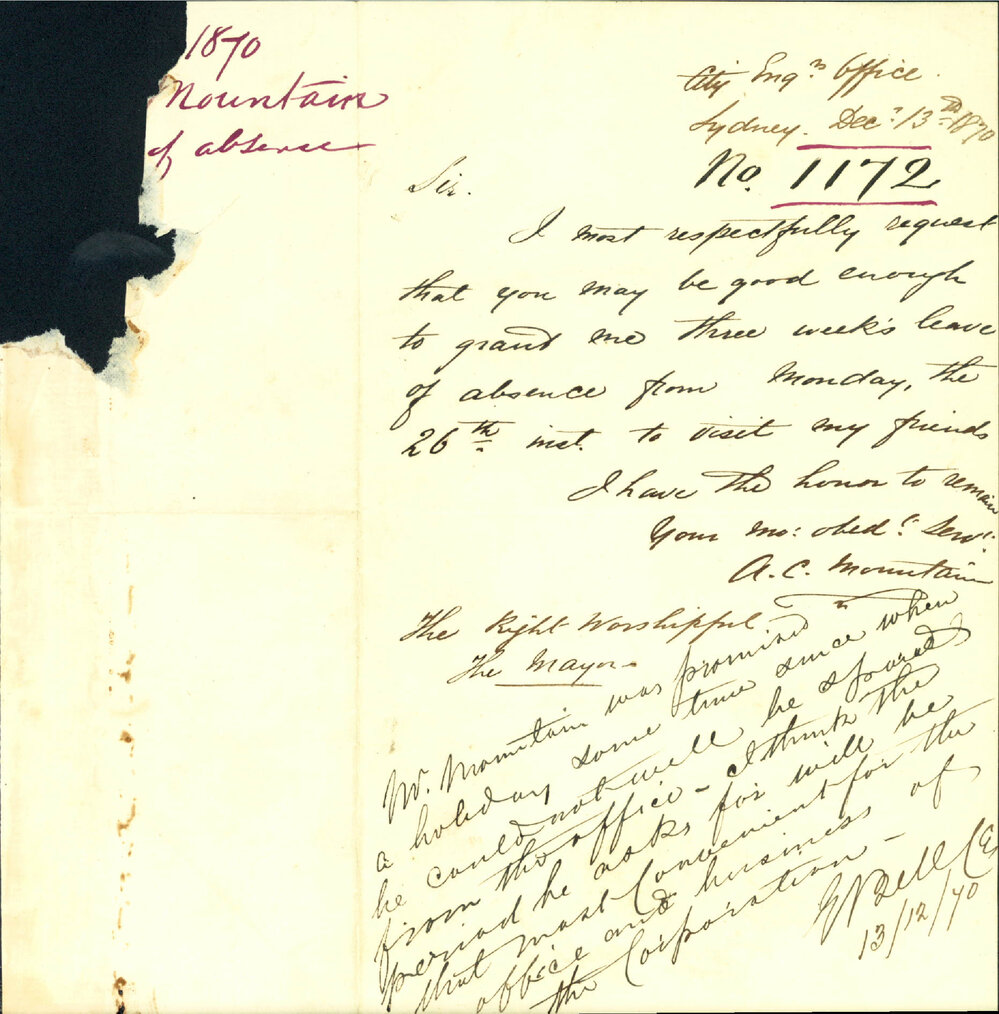 1870
Mountain
of absence
City Engrs Office.
Sydney. Decr 13th 1870
No. 1172
Sir.
I most respectfully request
that you may be good enough
to grant me three week's leave
of absence from Monday, the
26th inst. to visit my friends
I have the honor to remain
Your mo: obed.t Serv.t
A. C. Mountain
The Right Worshipful
The Mayor
Mr. Mountain was promised
a holiday some time since when
he could not well be spared
from the office - I think the
period he asks for will be
that most Convenient for the
office and business of
the Corporation -
Bell CE
13/12/70